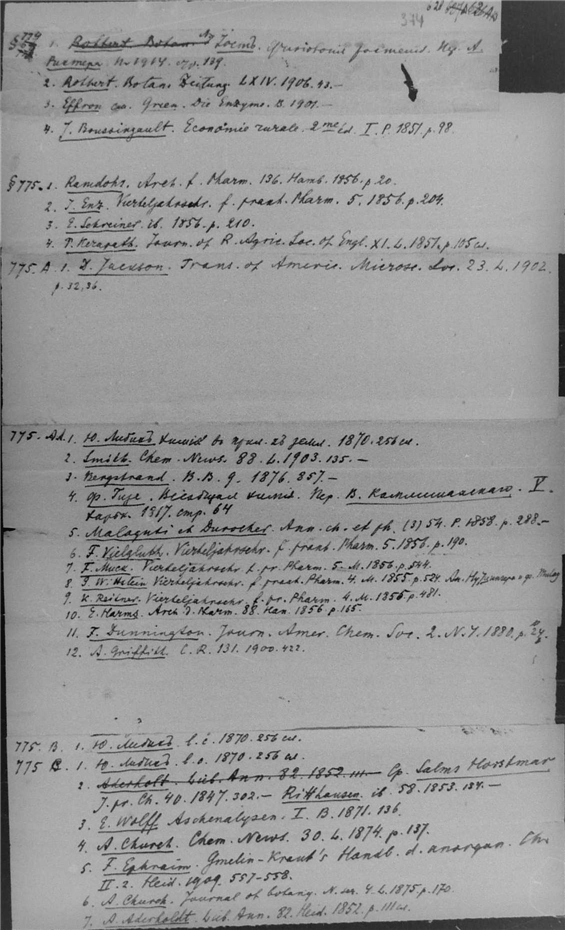 374
§ 774 1. Rothert Botan. Ну Iостъ. Физіологія растеній. Изд. А.
Риккера. Н. 1914. стр. 139.
2. Rothert. Botan. Zeitung LXIV. 1906. 43.—
3. Effron Green. Die Enzyme. B. 1901.—
4. J. Boussingault. Economie rurale. 2me éd. I. P. 1851. p. 98.
§ 775. 1. Ramdohr. Arch. f. Pharm. 136. Hamb. 1856. p. 20.
2. J. Enz. Vierteljahrschr. f. prakt. Pharm. 5. 1856. p. 204.
3. E. Schreiner. ib. 1856. p. 210.
4. Journ. of R. Agric. Soc. of Engl. XI. L. 1851. p. 105 сл.
775. A. 1. D. Jackson. Trans. of Americ. Microsc. Soc. 23. L. 1902.
p. 32, 36.
775. Ad. 1. Ю. Либихъ Химія въ прил. къ земл. 1870. 256 сл.
2. Smith. Chem. News. 88. L. 1903. 135.—
3. Bergstrand. B. B. 9. 1876. 857.—
4. Фр. Гизе. Всеобщая химія. Пер. В. Комлишинскаго. V.
Харьк. 1817. стр. 64
5. Malaguti et Durocher. Ann. ch. et ph. (3) 54. P. 1858. p. 288.—
6. F. Vielguth. Vierteljahrschr. f. prakt. Pharm. 5. 1856. p. 190.
7. F. Muck. Vierteljahrschr. f. pr. Pharm. 5. M. 1856. p. 544.
8. J. W. Stein Vierteljahrschr. f. prakt. Pharm. 4. M. 1855. p. 524.
9. K. Reitner. Vierteljahrschr. f. pr. Pharm. 4. M. 1855. p. 481.
10. E. Harms. Arch. d. Pharm. 88. Han. 1856. p. 165.
11. F. Dunnington. Journ. Amer. Chem. Soc. 2. N.Y. 1880. p. 24
12. A. Griffith. C. R. 131. 1900. 422.
775. B. 1. Ю. Либихъ. l. c. 1870. 256 сл.
775 C. 1. Ю. Либихъ. l. c. 1870. 256 сл.
2. Aderholt. Lieb. Ann. 82. 1852. 111.— Ср. Salms Horstmar
J. pr. Ch. 40. 1847. 302.— Ritthausen. ib. 58. 1853. 134.—
3. E. Wolff Aschenalysen. I. B. 1871. 136.
4. A. Church. Chem. News. 30. L. 1874. p. 137.
5. F. Ephraim. Gmelin-Kraut's Handb. d. anorgan. Ch.
II. 2. Heid. 1909. 557-558.
6. A. Church. Journal of botany. N. ser. 4. L. 1875. p. 170.
7. A. Aderholdt. Lieb. Ann. 82. Heid. 1852. p. 111 сл.